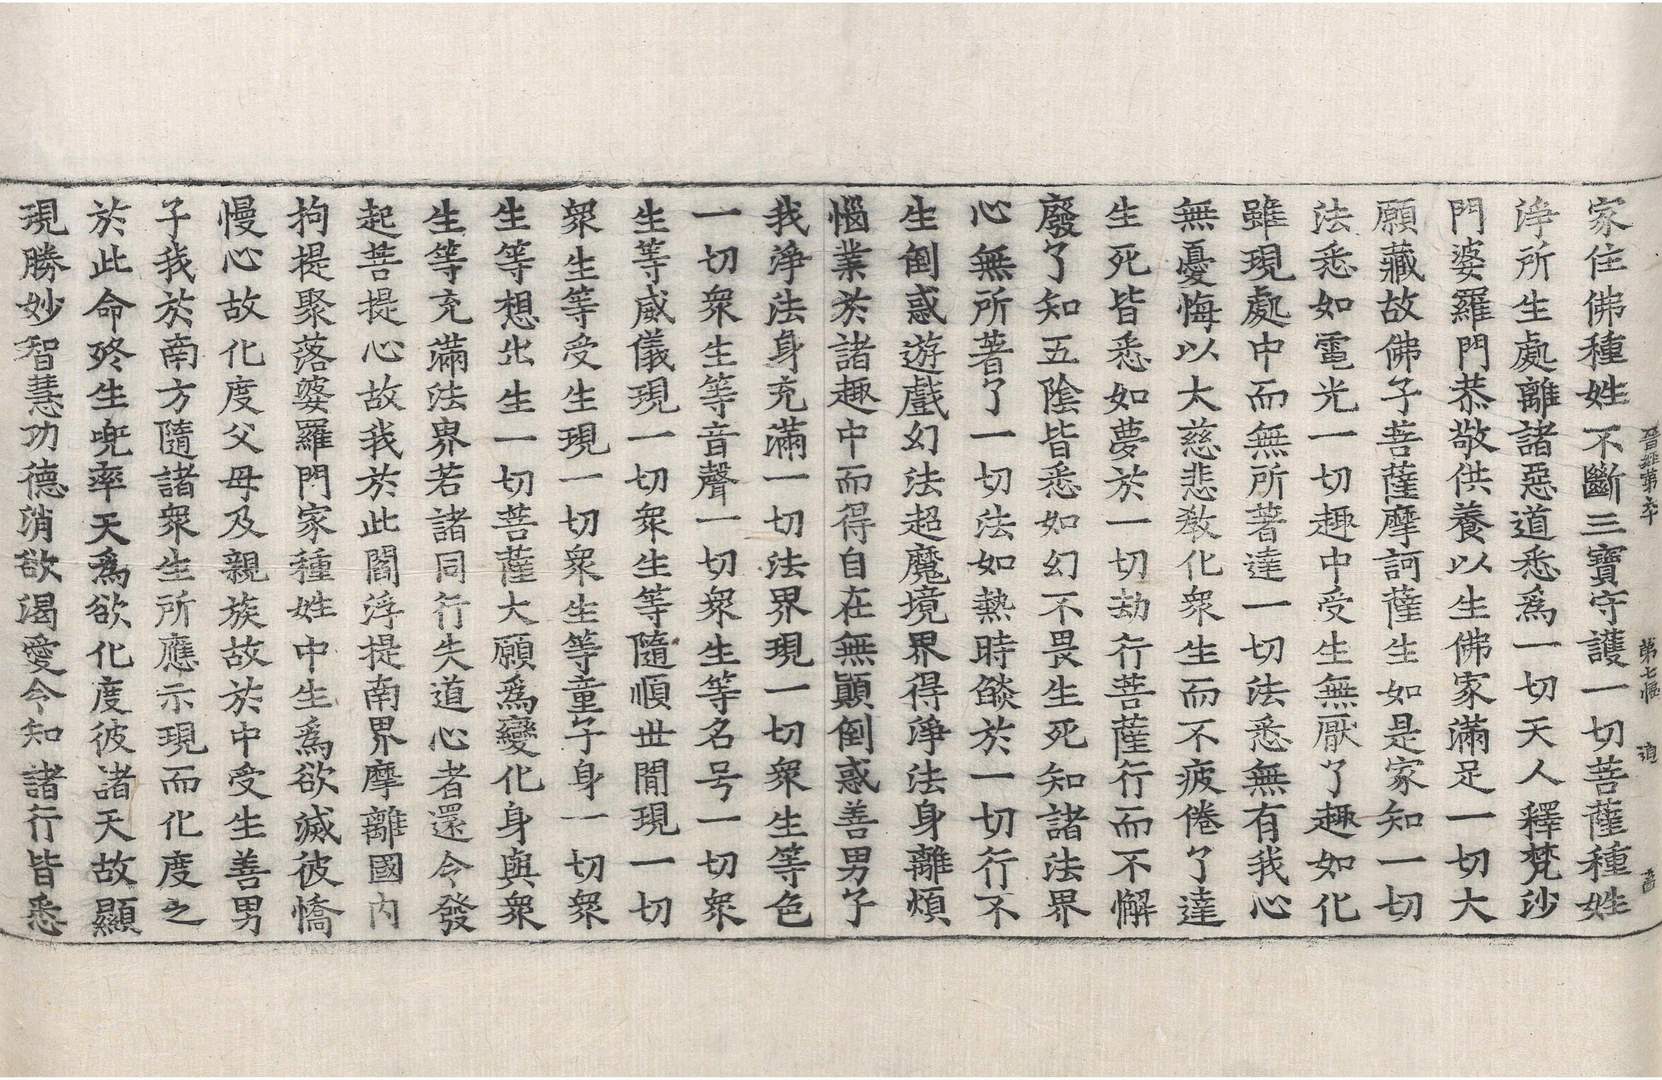 晉經第六十
第七幅
家住佛種姓不斷三寶守護一切菩薩種姓
淨所生處離諸惡道悉爲一切天人釋梵沙
門婆羅門恭敬供養以生佛家滿足一切大
願藏故佛子菩薩摩訶薩生如是家知一切
法悉如電光一切趣中受生無厭了趣如化
雖現處中而無所著達一切法悉無有我心
無憂悔以大慈悲敎化衆生而不疲倦了達
生死皆悉如夢於一切劫行菩薩行而不懈
廢了知五陰皆悉如幻不畏生死知諸法界
心無所著了一切法如熱時燄於一切行不
生倒惑遊戲幻法超魔境界得淨法身離煩
惱業於諸趣中而得自在無顚倒惑善男子
我淨法身充滿一切法界現一切衆生等色
一切衆生等音聲一切衆生等名号一切衆
生等威儀現一切衆生等隨順世閒現一切
衆生等受生現一切衆生等童子身一切衆
生等想出生一切菩薩大願爲變化身與衆
生等充滿法界若諸同行失道心者還令發
起菩提心故我於此閻浮提南界摩離國內
拘提聚落婆羅門家種姓中生爲欲滅彼憍
慢心故化度父母及親族故於中受生善男
子我於南方隨諸衆生所應示現而化度之
於此命終生兜率天爲欲化度彼諸天故顯
現勝妙智慧功德消欲渴愛令知諸行皆悉